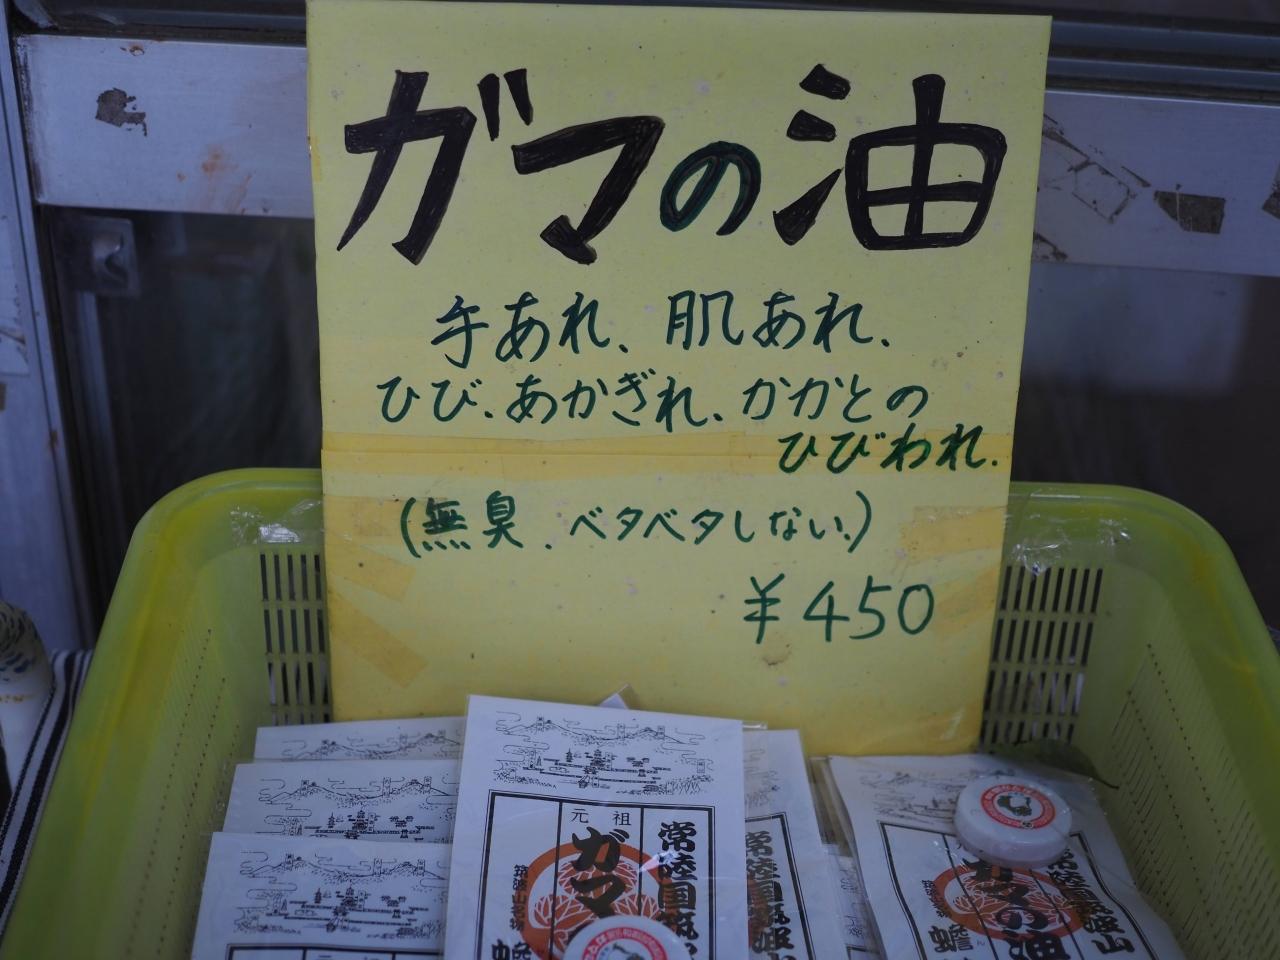 ガマの油
手あれ、肌あれ、
ひび、あかぎれ、かかとの
ひびわれ.
(無臭、ベタベタしない、)
¥450
常陸国筑
元祖
ガマ
筑波山名物
蟾
常陸国筑波
常陸国筑波山
ガマの油
蟾